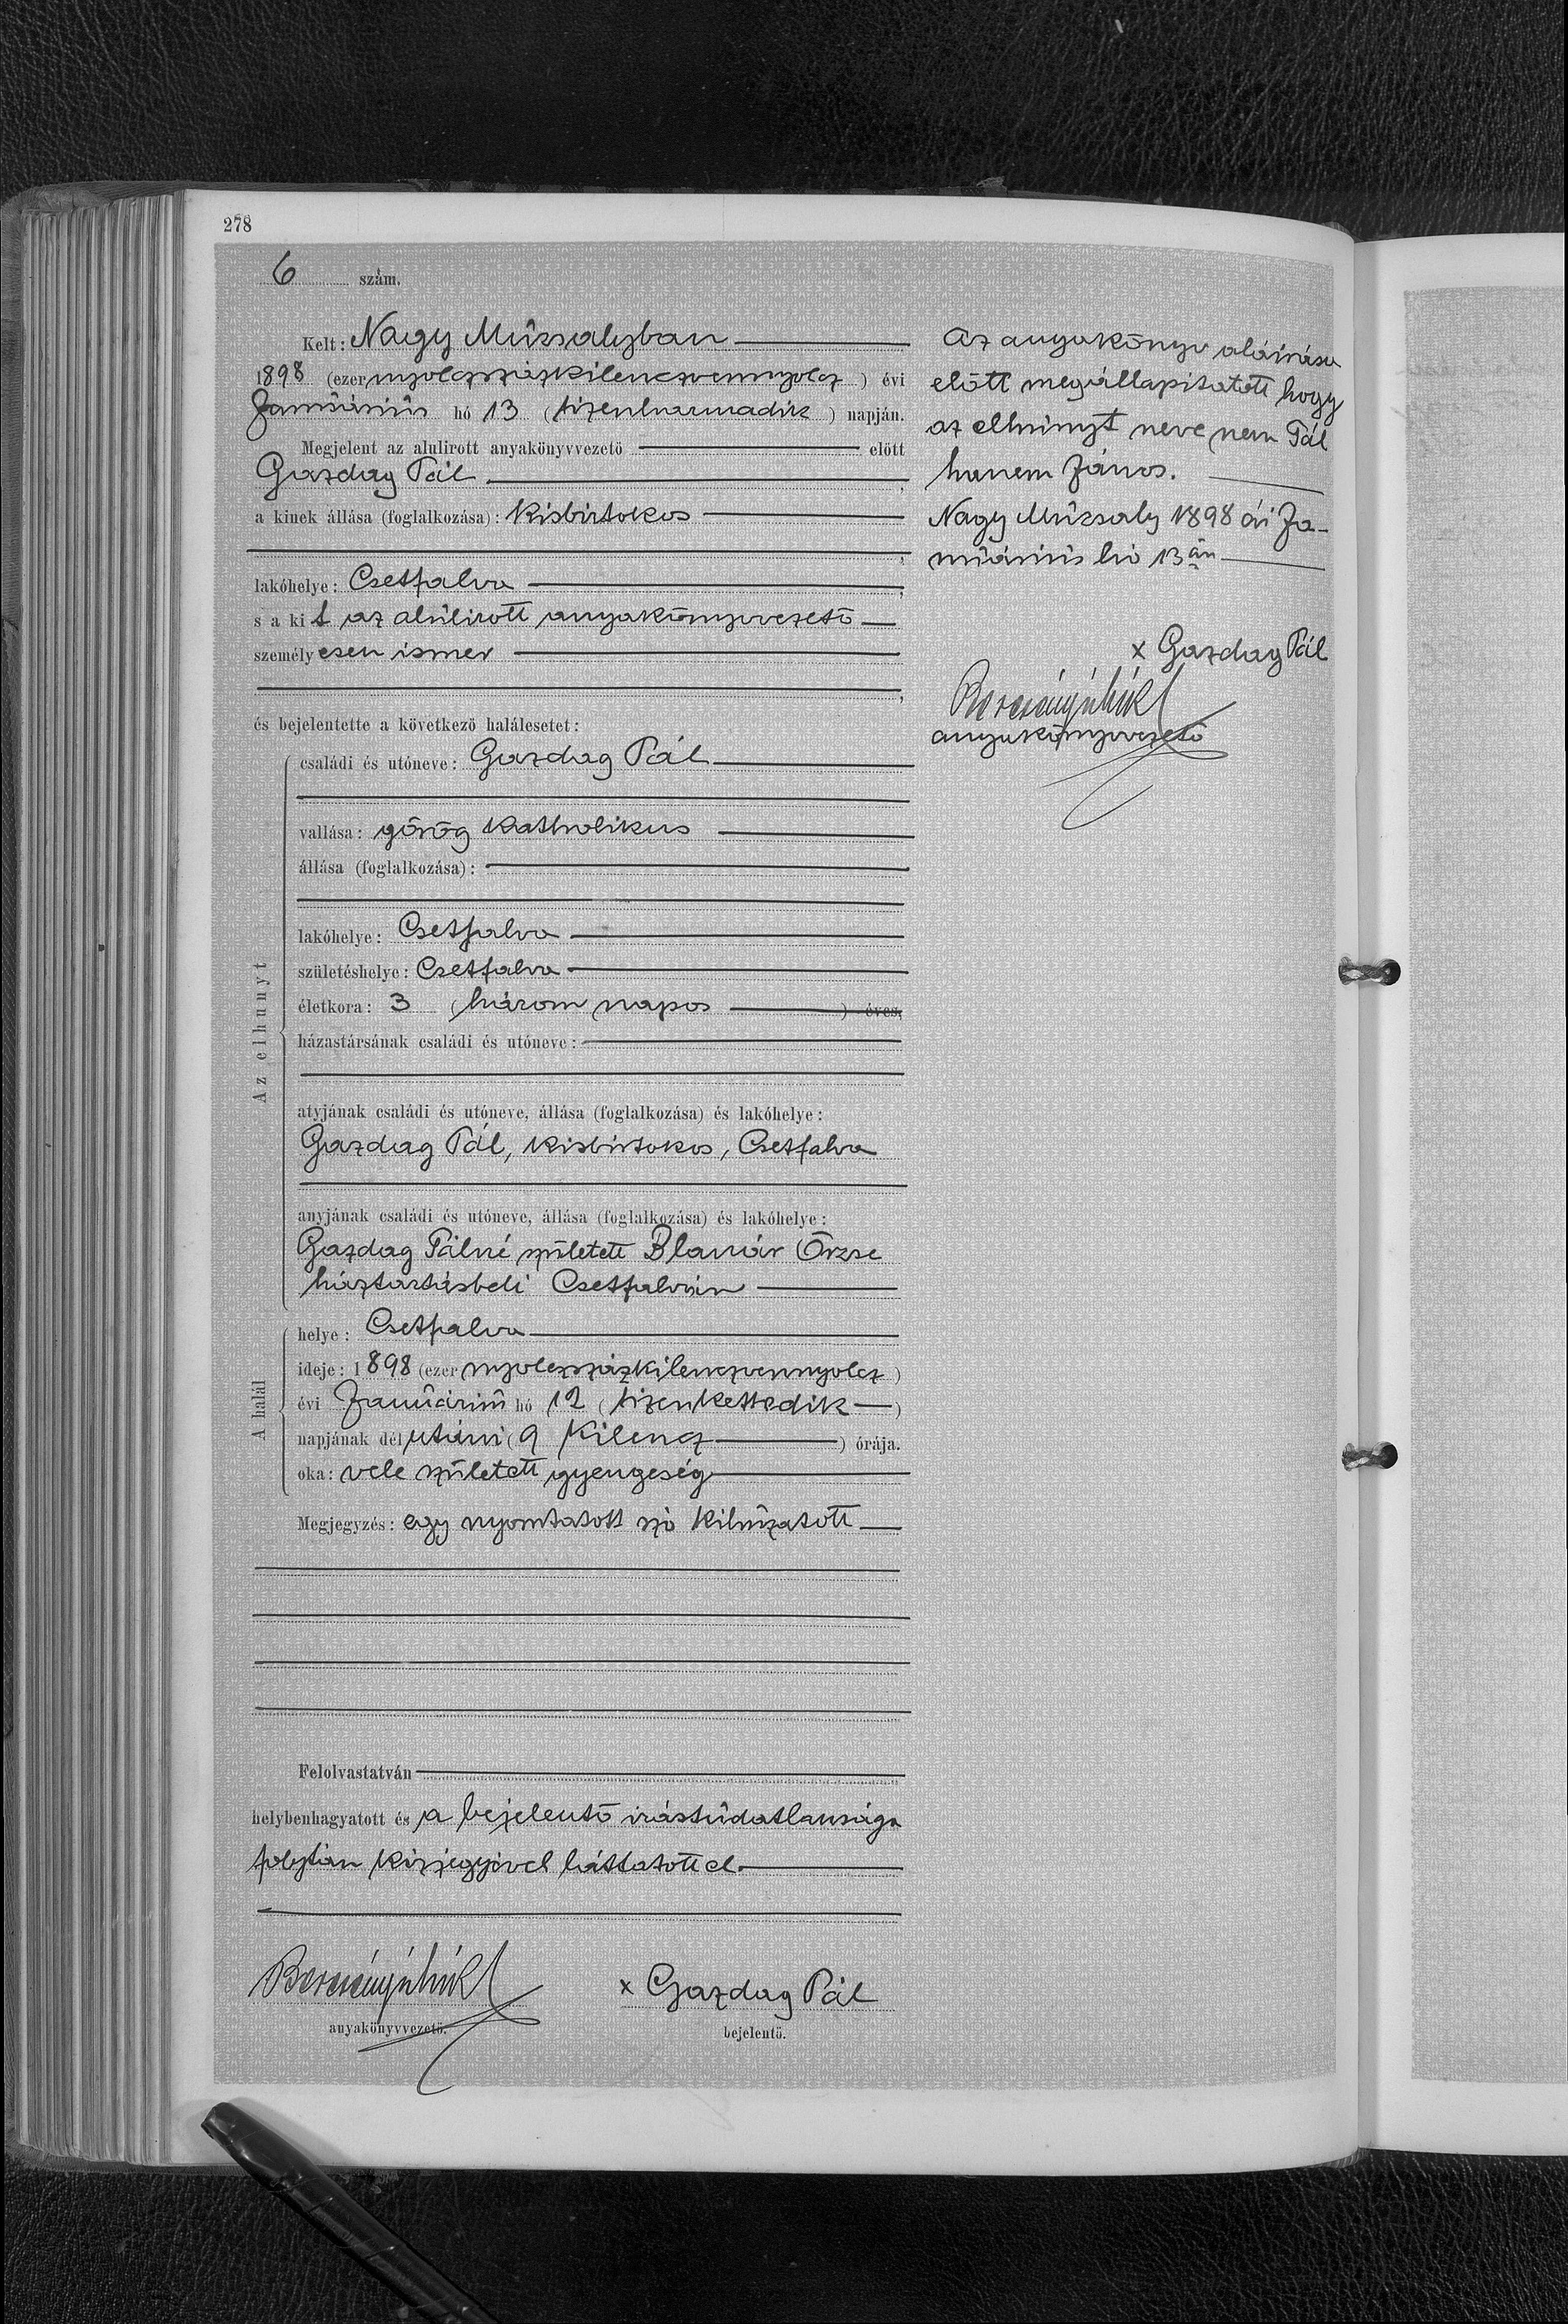 278
6 szám.
Kelt: Nagy Muzsalyban
1898 (ezernyolczszázkilenczvennyolcz) évi
Januárius hó 13 (tizenharmadik) napján.
Megjelent az alulirott anyakönyvvezető előtt
Gazdag Pál,
a kinek állása (foglalkozása): kisbirtokos
lakóhelye: Csetfalva,
s a kit az alúlirott anyakönyvvezető
személyesen ismer
és bejelentette a következő halálesetet:
Az elhunyt
családi és utóneve: Gazdag Pál
vallása: görög katholikus
állása (foglalkozása):
lakóhelye: Csetfalva
születéshelye: Csetfalva
életkora: 3 (három napos) éves,
házastársának családi és utóneve:
atyjának családi és utóneve, állása (foglalkozása) és lakóhelye:
Gazdag Pál, kisbirtokos, Csetfalva
anyjának családi és utóneve, állása (foglalkozása) és lakóhelye:
Gazdag Pálné született Blanár Örzse
háztartásbeli Csetfalván
A halál
helye: Csetfalva
ideje: 1898 (ezernyolczszázkilenczvennyolcz)
évi Januárius hó 12 (tizenkettedik)
napjának délutáni (9 Kilencz) órája.
oka: vele született gyengeség
Megjegyzés: egy nyomtatott szó kihúzatott
Felolvastatván
helybenhagyatott és a bejelentő irástúdatlansága
folytán kézjegyével láttatott el.
anyakönyvvezető.
x Gazdag Pál
bejelentő.
Az anyakönyv aláirása
előtt megállapitatott hogy
az elhúnyt neve nem Pál
hanem János.
Nagy Muzsaly 1898 évi Ja-
nuárius hó 13án
x Gazdag Pál
anyakönyvvezető